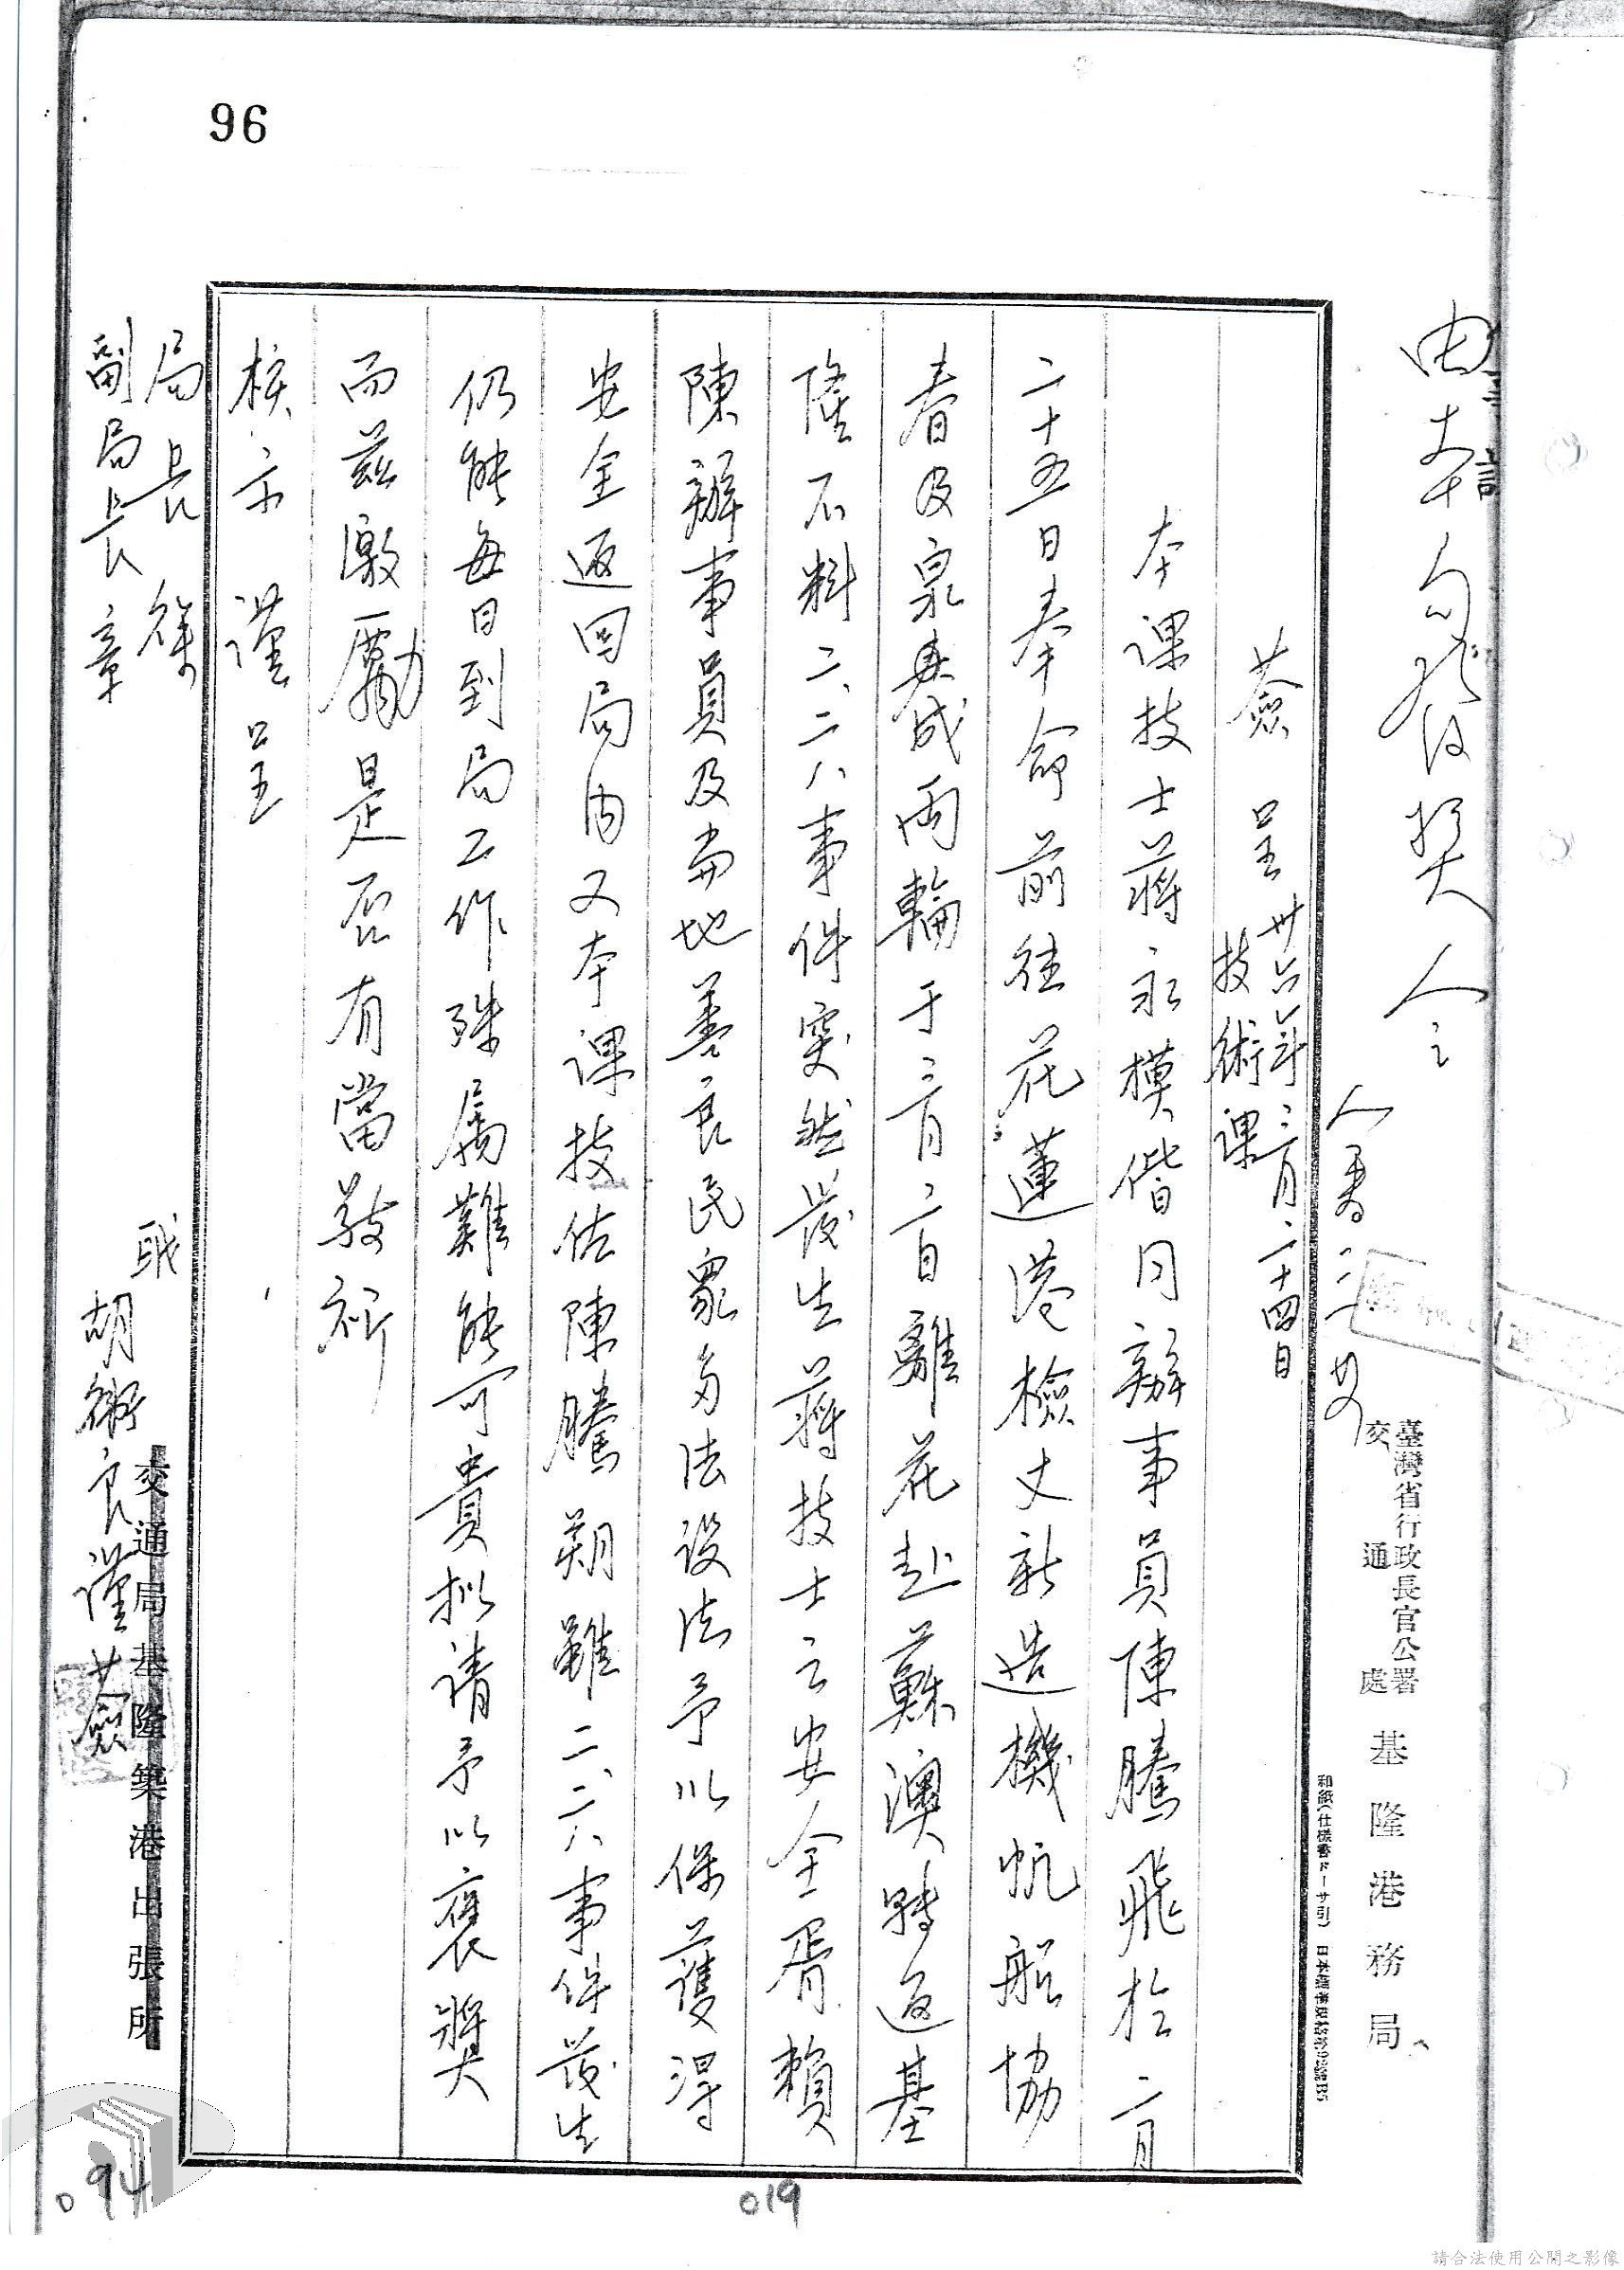 96
由本局發給獎令
簽呈 卅六年三月二十四日
技術課
本課技士蔣永模偕同辦事員陳騰飛於二月
二十五日奉命前往花蓮港檢丈新造機帆船協
春及泉集成兩輪于三月二日離花赴蘇澳轉返基
隆不料二、二八事件突然發生蔣技士之安全胥賴
陳辦事員及當地善良民眾多法設法予以保護得
安全返回局內又本課技佐陳騰朔雖二、二八事件發生
仍能每日到局工作殊屬難能可貴擬請予以褒獎
而茲激勵是否有當敬祈
核示 謹呈
局長 徐
副局長 章
職 胡衛良謹簽
臺灣省行政長官公署
交通處
基隆港務局
交通局基隆築港出張所
094
019
請合法使用公開之影像